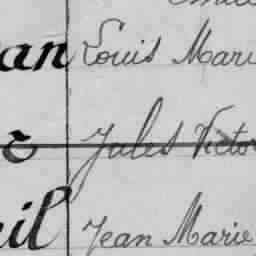 an Louis Mari
Jules Victo
eil Jean Marie